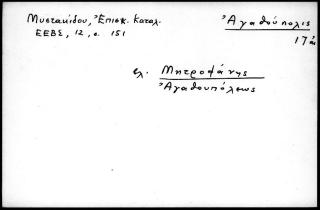 Μυστακίδου, Ἐπισκ. Καταλ.
ΕΕΒΣ, 12, σ. 151
Ἀγαθούπολις
17
βλ. Μητροφάνης
Ἀγαθουπόλεως